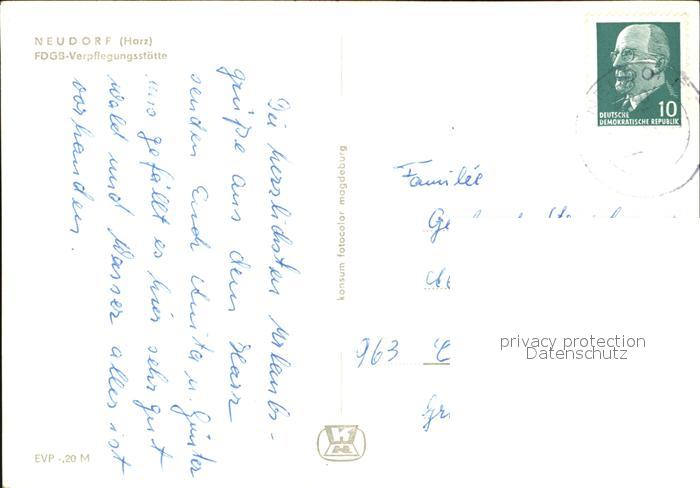 NEUDORF (Harz)
FDGB-Verpflegungsstätte
Die herzlichsten Urlaubs-
grüße aus dem Harz
senden Euch Anita u. Günter
Uns gefällt es hier sehr gut
Wald und Wasser alles ist
vorhanden.
EVP -,20 M
konsum fotocolor magdeburg
10
DEUTSCHE
DEMOKRATISCHE REPUBLIK
Familie
963
privacy protection
Datenschutz